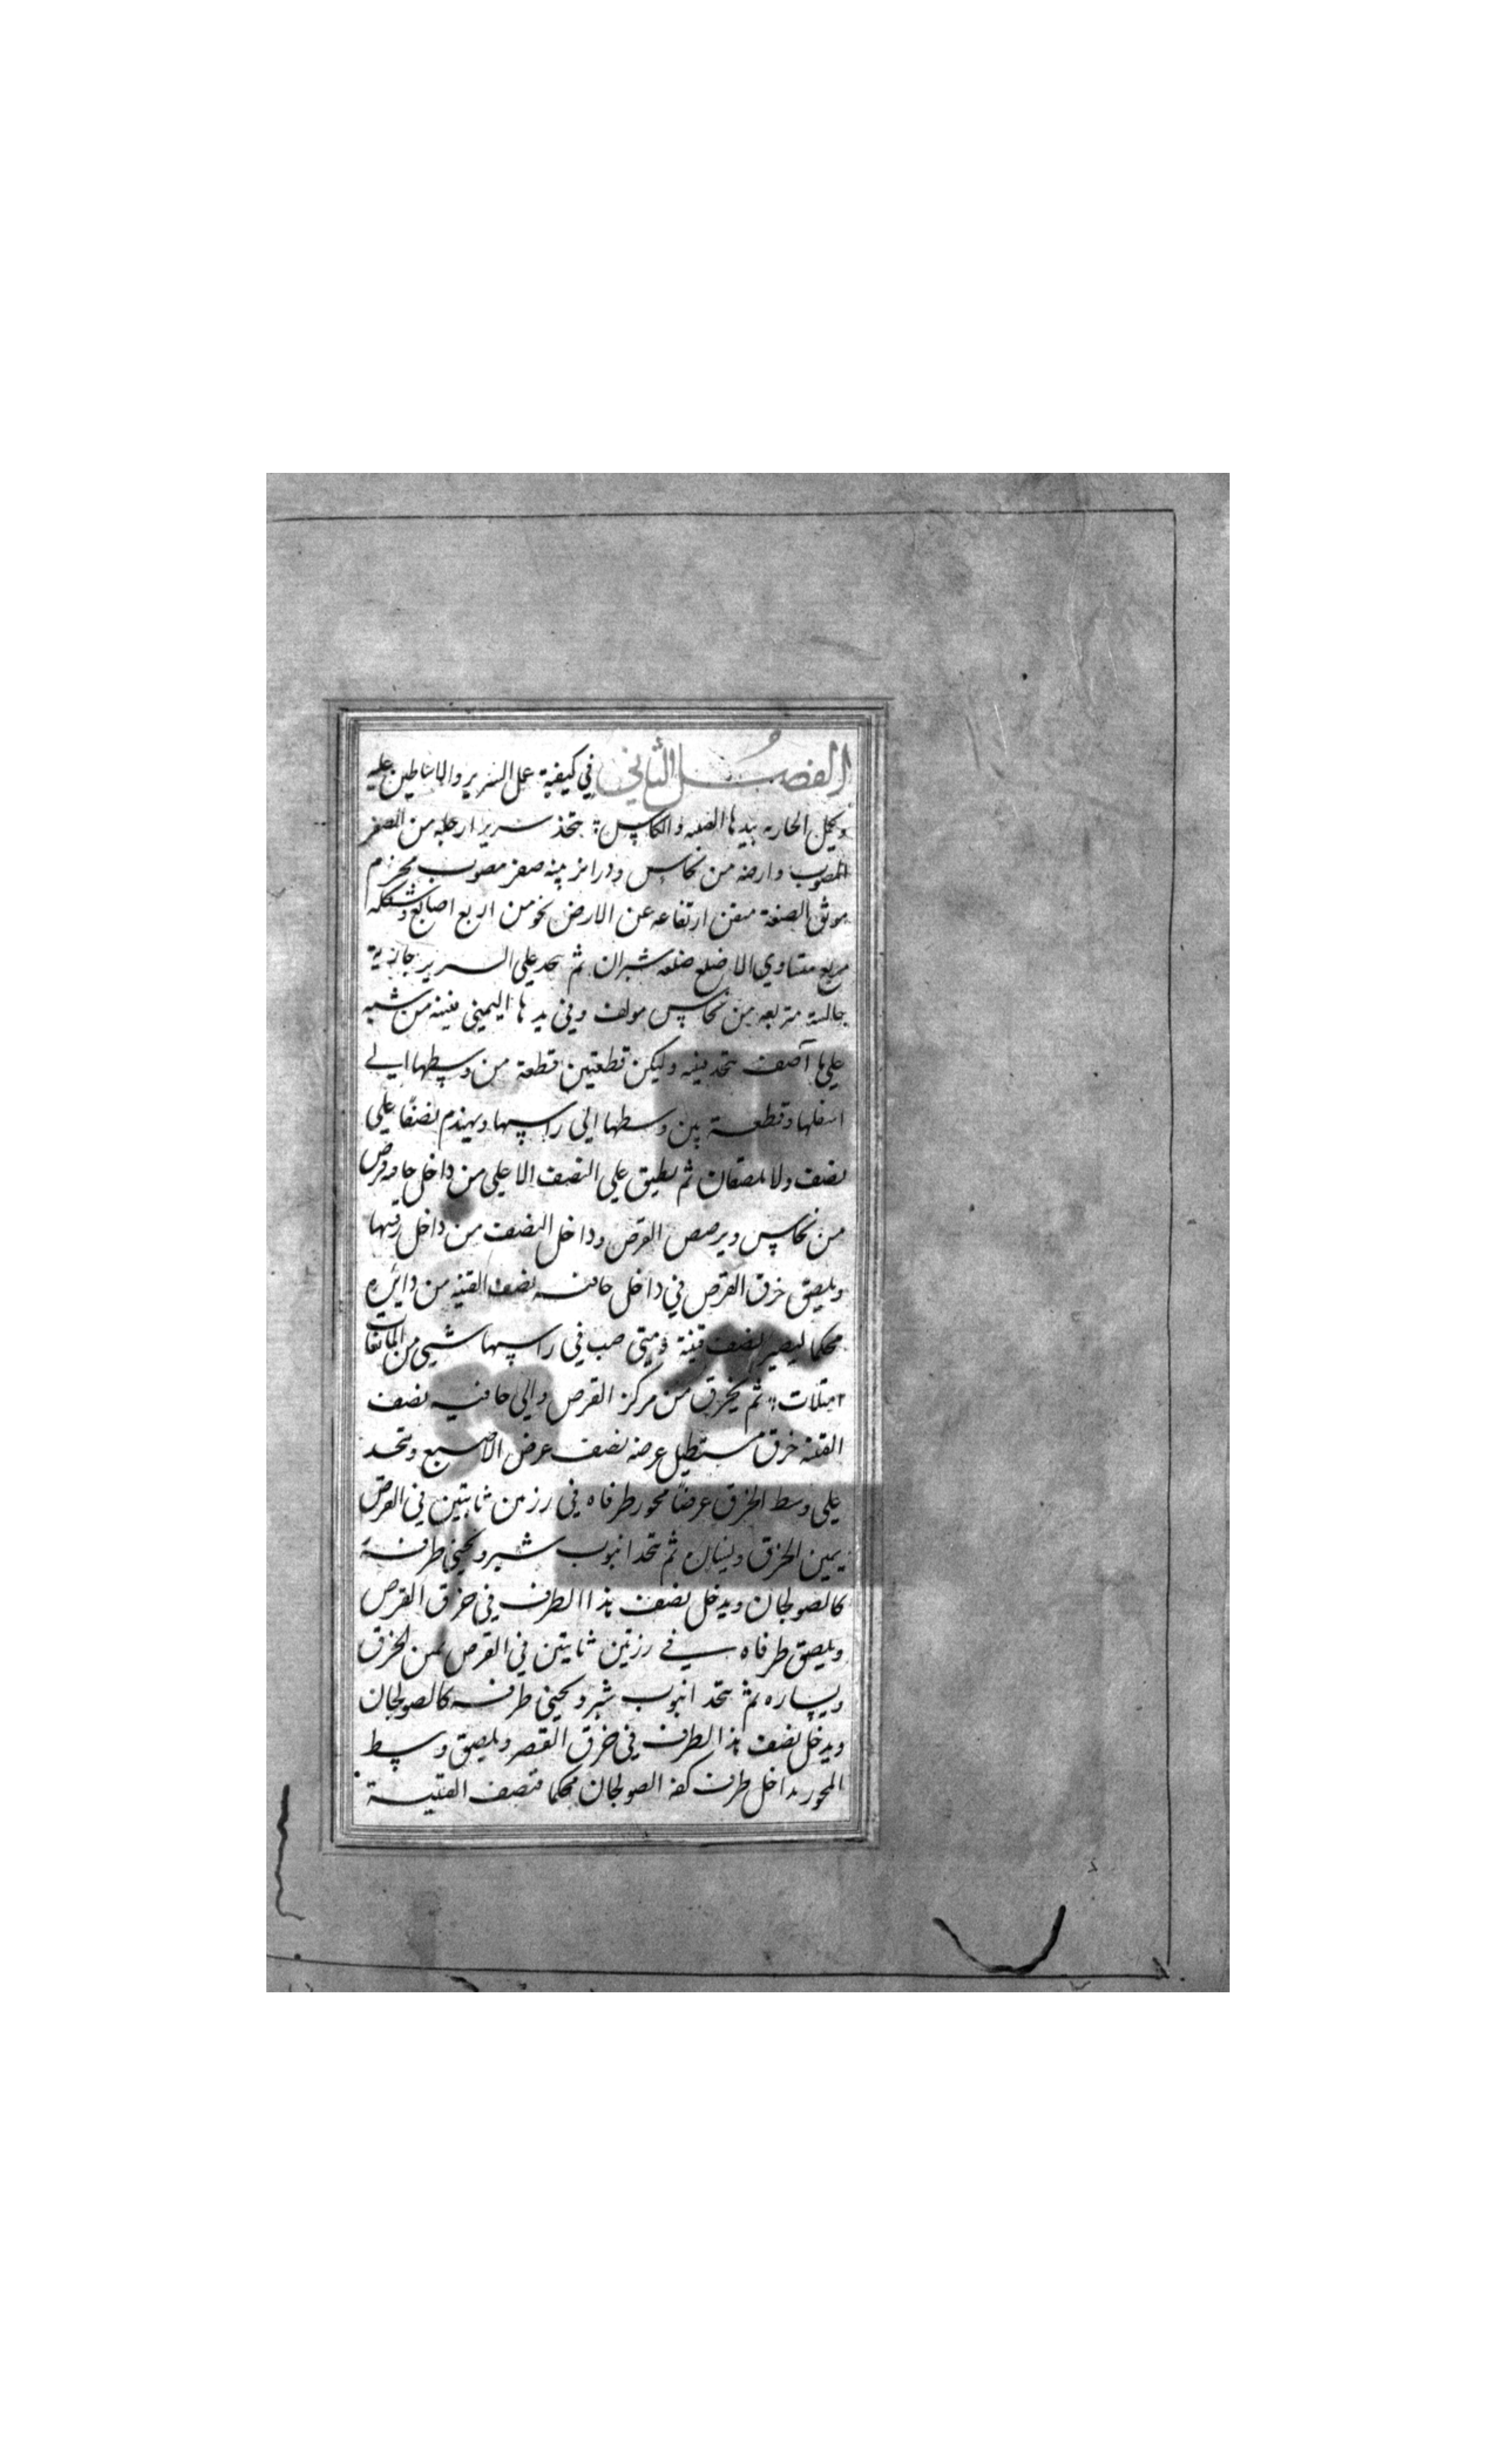 الفصل الثاني في كيفية عمل السرير والاساطين عليه
وكل الجارية بيدها القنينة والكاس يتخذ سرير ارجله من الصفر
المصبوب وارضه من نحاس ودرابزينه صفر مصبوب مخرم
موثق الصنعة متقن ارتفاعه عن الارض نحو من اربع اصابع وشكله
مربع متساوي الاضلع ضلعه شبران ثم يتخذ علي السرير جارية
جالسة متربعه من نحاس مولف وفي يدها اليمني قنينه من شبه
علي ما آصف تتخذ قنينه وليكن قطعتين قطعة من وسطها الي
اسفلها وقطعة من وسطها الي راسها ويهندم نصفا علي
نصف ولا يلصقان ثم يطبق علي النصف الاعلي من داخل حافه قرص
من نحاس ويرصص القرص وداخل النصف من داخل رقبتها
ويلصق خرق القرص في داخل حافة نصف القنينه من دايره
محكما ليصير نصف قنينة ومتي صب في راسها شيي من المايعات
امتلات ثم يخرق من مركز القرص والي حافيه نصف
القنينه خرق مستطيل عرضه نصف عرض الاصبع ويتخذ
علي وسط الخرق عرضا محور طرفاه في رزمن ثابتين في القرص
يمين الخرق ويساره ثم يتخذ انبوب شبر ويحني طرفه
كالصولجان ويدخل نصف هذا الطرف في خرق القرص
ويلصق طرفاه في رزتين ثابتين في القرص يمن الخرق
ويساره ثم يتخذ انبوب شبر ويحني طرفه كالصولجان
ويدخل نصف هذا الطرف في خرق القصر ويلصق وسط
المحور بداخل طرف كفه الصولجان محكما فنصف القنينة